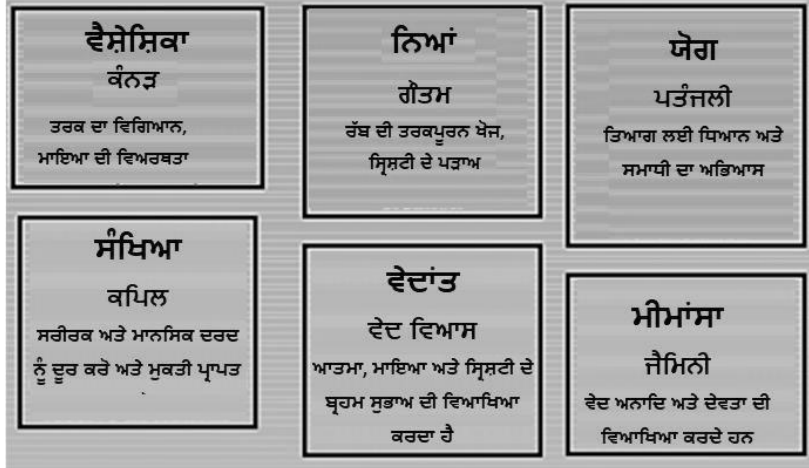 ਵੈਸ਼ੇਸ਼ਿਕਾ
ਕੰਨੜ
ਤਰਕ ਦਾ ਵਿਗਿਆਨ,
ਮਾਇਆ ਦੀ ਵਿਅਰਥਤਾ
ਨਿਆਂ
ਗੌਤਮ
ਰੱਬ ਦੀ ਤਰਕਪੂਰਨ ਖੋਜ,
ਸ੍ਰਿਸ਼ਟੀ ਦੇ ਪੜਾਅ
ਯੋਗ
ਪਤੰਜਲੀ
ਤਿਆਗ ਲਈ ਧਿਆਨ ਅਤੇ
ਸਮਾਧੀ ਦਾ ਅਭਿਆਸ
ਸੰਖਿਆ
ਕਪਿਲ
ਸਰੀਰਕ ਅਤੇ ਮਾਨਸਿਕ ਦਰਦ
ਨੂੰ ਦੂਰ ਕਰੋ ਅਤੇ ਮੁਕਤੀ ਪ੍ਰਾਪਤ
ਵੇਦਾਂਤ
ਵੇਦ ਵਿਆਸ
ਆਤਮਾ, ਮਾਇਆ ਅਤੇ ਸ੍ਰਿਸ਼ਟੀ ਦੇ
ਬ੍ਰਹਮ ਸੁਭਾਅ ਦੀ ਵਿਆਖਿਆ
ਕਰਦਾ ਹੈ
ਮੀਮਾਂਸਾ
ਜੈਮਿਨੀ
ਵੇਦ ਅਨਾਦਿ ਅਤੇ ਦੇਵਤਾ ਦੀ
ਵਿਆਖਿਆ ਕਰਦੇ ਹਨ